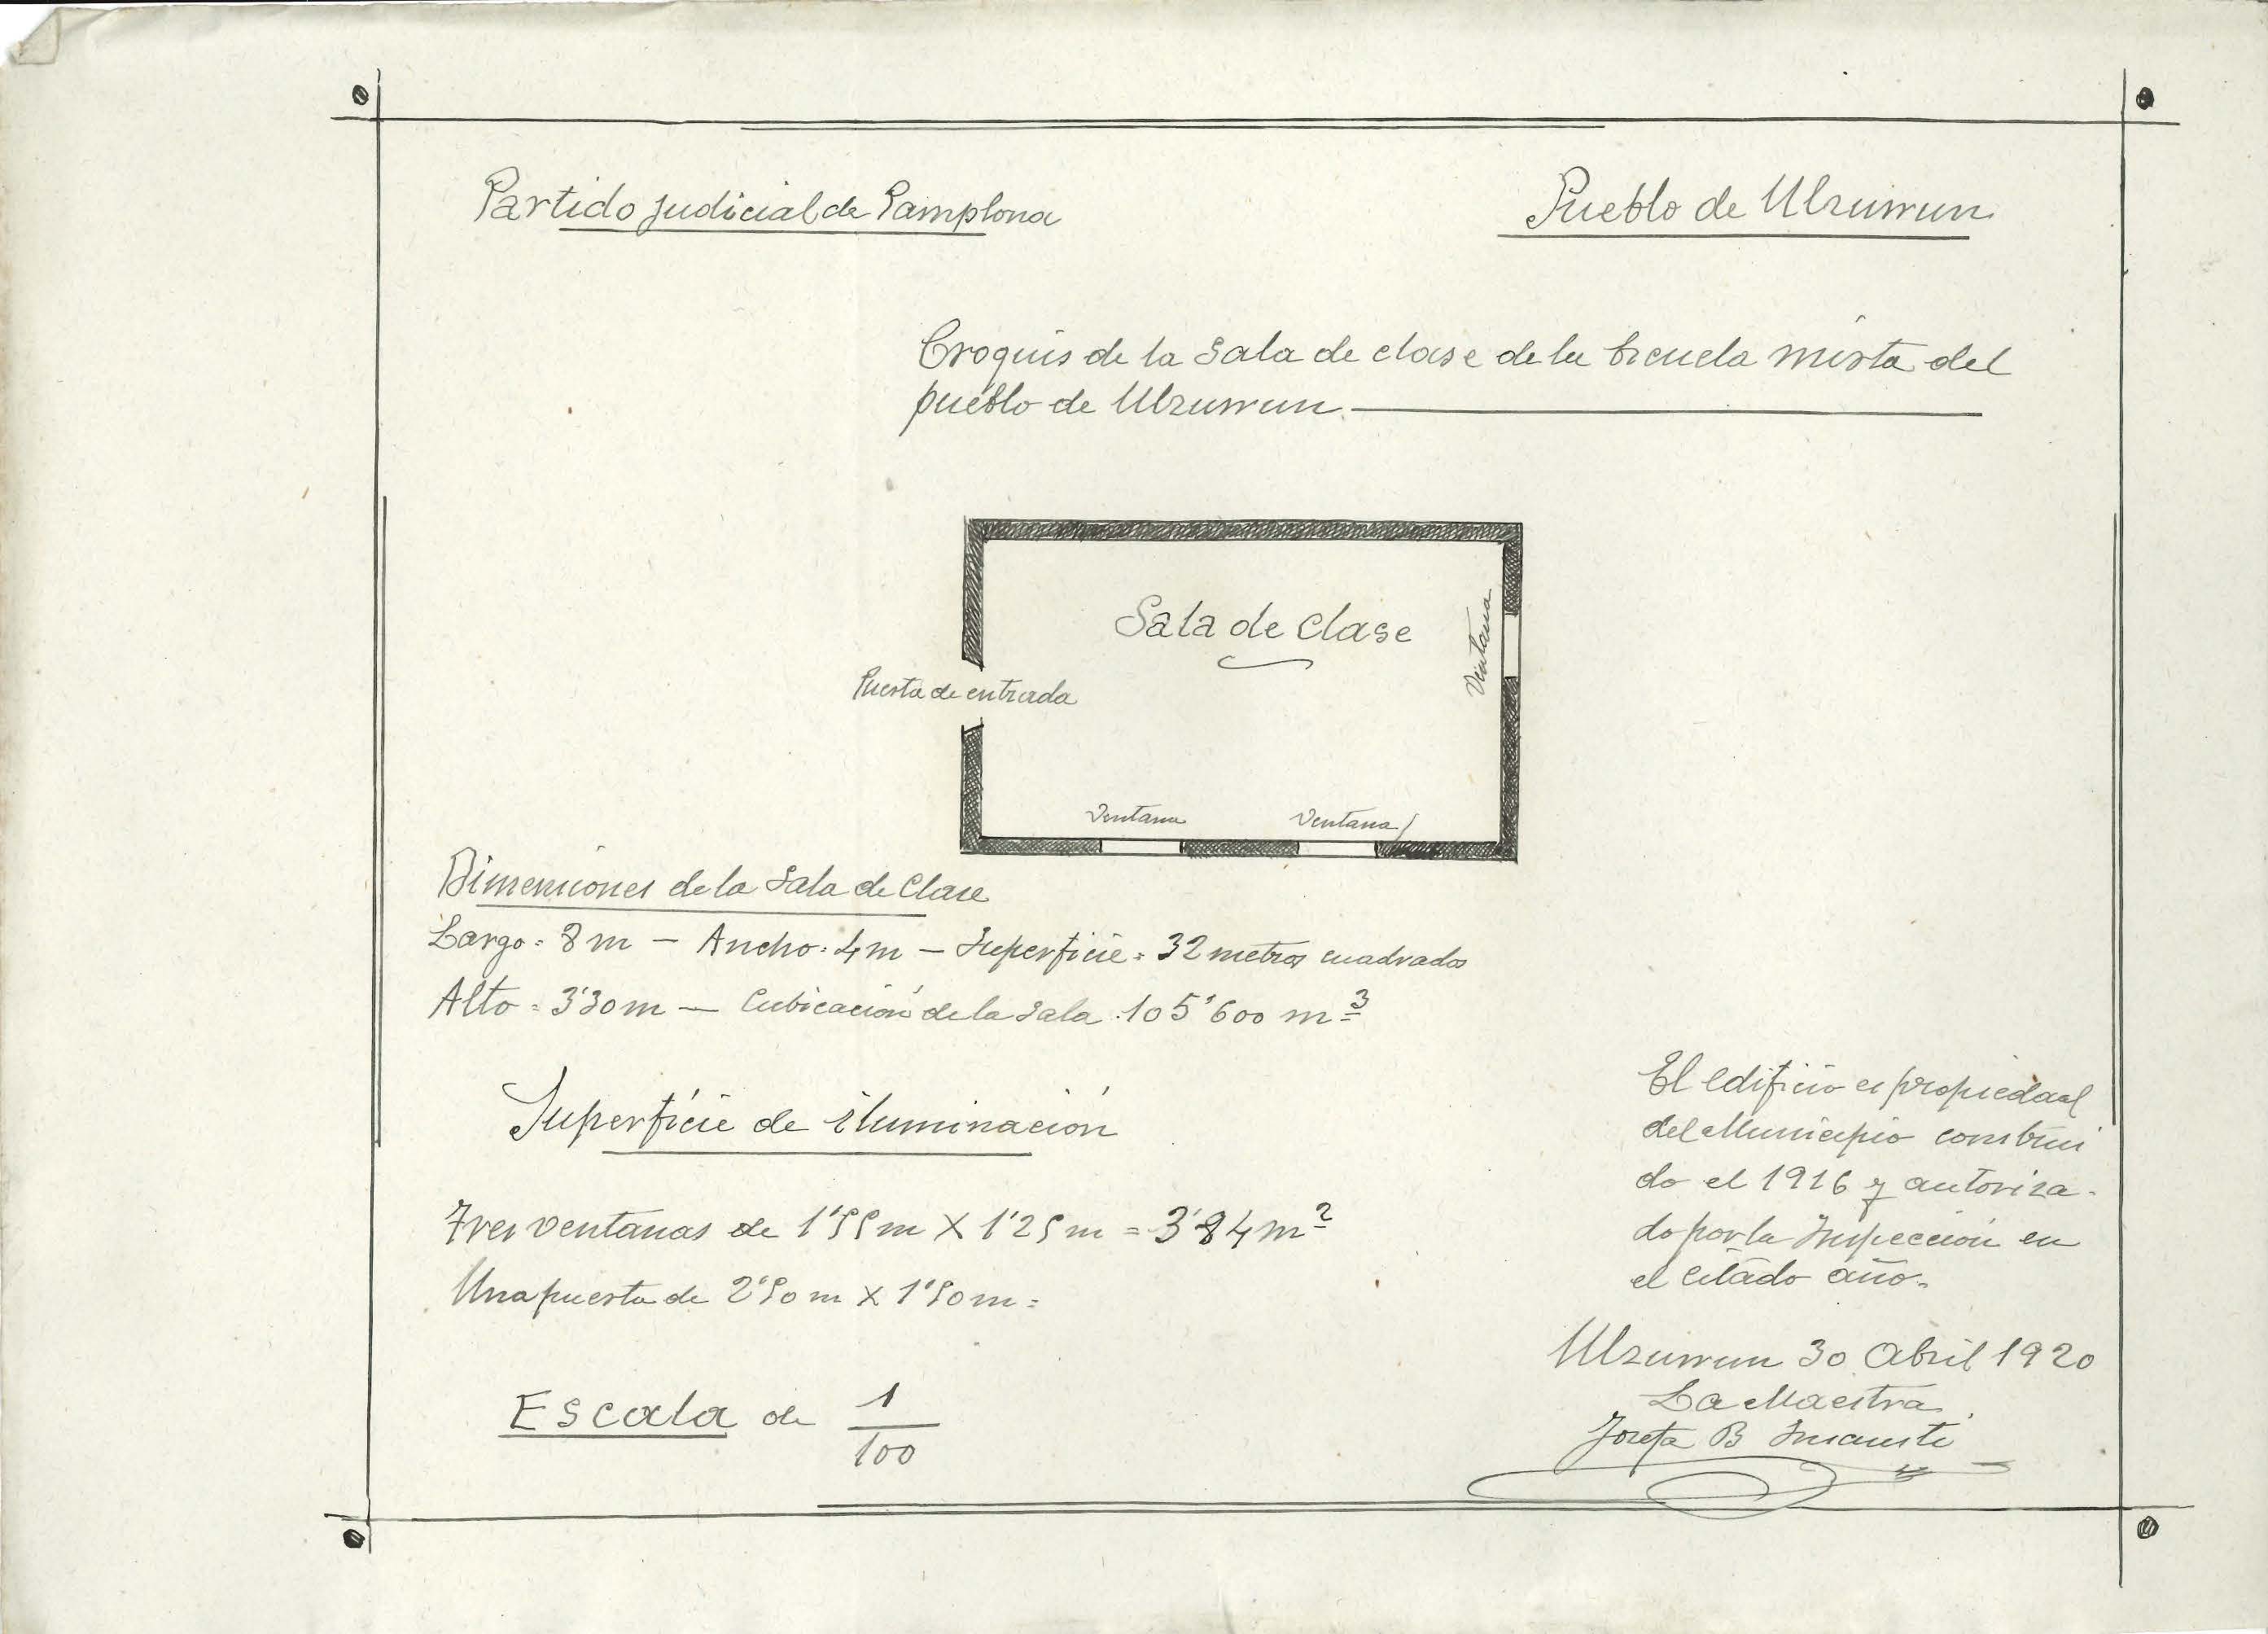 Partido judicial de Pamplona
Pueblo de Ulzurrun
Croquis de la Sala de clase de la Escuela mixta del
pueblo de Ulzurrun.
Sala de clase
Ventana
Puerta de entrada
Ventana
Ventana
Dimensiones de la Sala de Clase
Largo = 8 m — Ancho = 4 m — Superficie = 32 metros cuadrados
Alto = 3'30 m — Cubicación de la Sala. 105'600 m³
Superficie de iluminación
Tres ventanas de 1'55 m X 1'25 m = 3'84 m²
Una puesta de 2'50 m X 1'50 m =
Escala de 1/100
El edificio es propiedad
del Municipio construi
do el 1916 y autoriza-
do por la Inspección en
el citado año.
Ulzurrun 30 Abril 1920
La Maestra
Josefa B